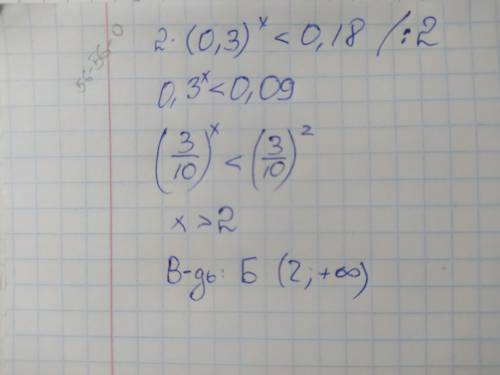 2·(0,3)ˣ < 0,18 /:2
0,3ˣ < 0,09
(3/10)ˣ < (3/10)²
x > 2
В-дь: Б (2; +∞)